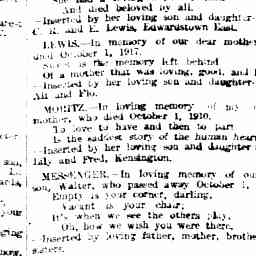 And died beloved by all.
—Inserted by her loving son and daughter-
C. R. and E. Lewis, Edwardstown East.
LEWIS.—In memory of our dear mother
died October 1, 1917.
Sweet is the memory left behind
Of a mother that was loving, good, and
—Inserted by her loving son and daughter
Alf and Flo.
MORITZ.—In loving memory of my
mother, who died October 1, 1910.
To love to have and then to part
Is the saddest story of the human heart
—Inserted by her loving son and daughter
Lily and Fred, Kensington.
MESSENGER.—In loving memory of our
son, Walter, who passed away October 1,
Empty is your corner, darling,
Vacant is your chair;
It's when we see the others play,
Oh, how we wish you were there.
—Inserted by loving father, mother, brothe
sisters.